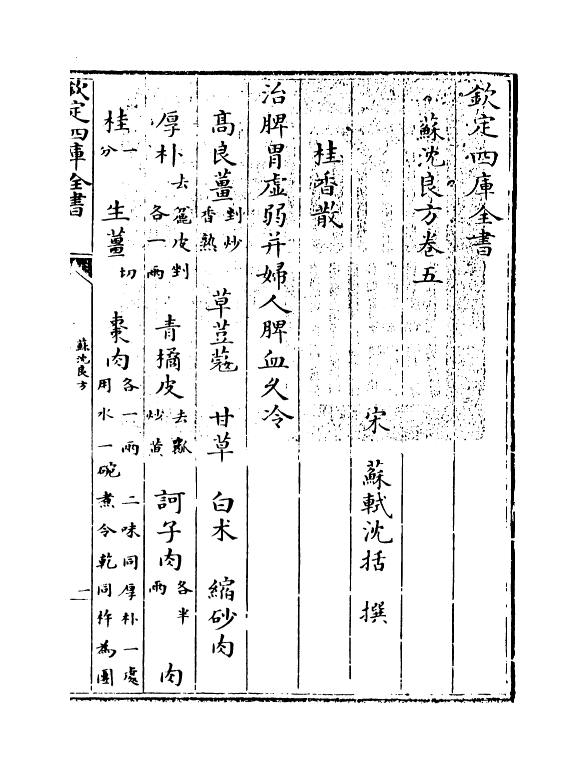 欽定四庫全書
蘇沈良方卷五
宋 蘇軾沈括 撰
桂香散
治脾胃虛弱并婦人脾血久冷
高良薑剉炒香熟 草荳蔻 甘草 白术 縮砂肉
厚朴去麄皮剉各一兩 青橘皮去瓤炒黃 訶子肉各半兩 肉
桂一分 生薑切 棗肉各一兩二味同厚朴一處用水一碗煮令乾同杵為團
欽定四庫全書
蘇沈良方
一